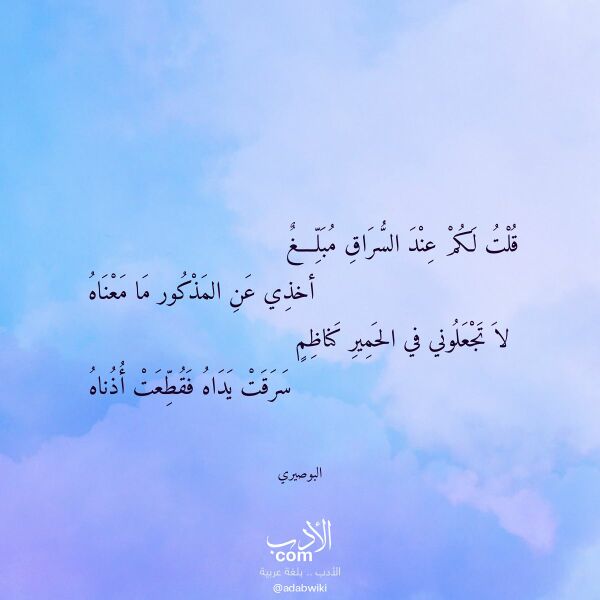 قُلْتُ لَكُمْ عِنْدَ السُّرَاقِ مُبَلِّـــغٌ
أخذِي عَنِ المَذْكُور مَا مَعْنَاهُ
لاَ تَجْعَلُوني في الحَمِيرِ كَناظِمٍ
سَرَقَتْ يَدَاهُ فَقُطِّعَتْ أُذُناهُ
البوصيري
الأدب
com
الأدب .. بلغة عربية
@adabwiki